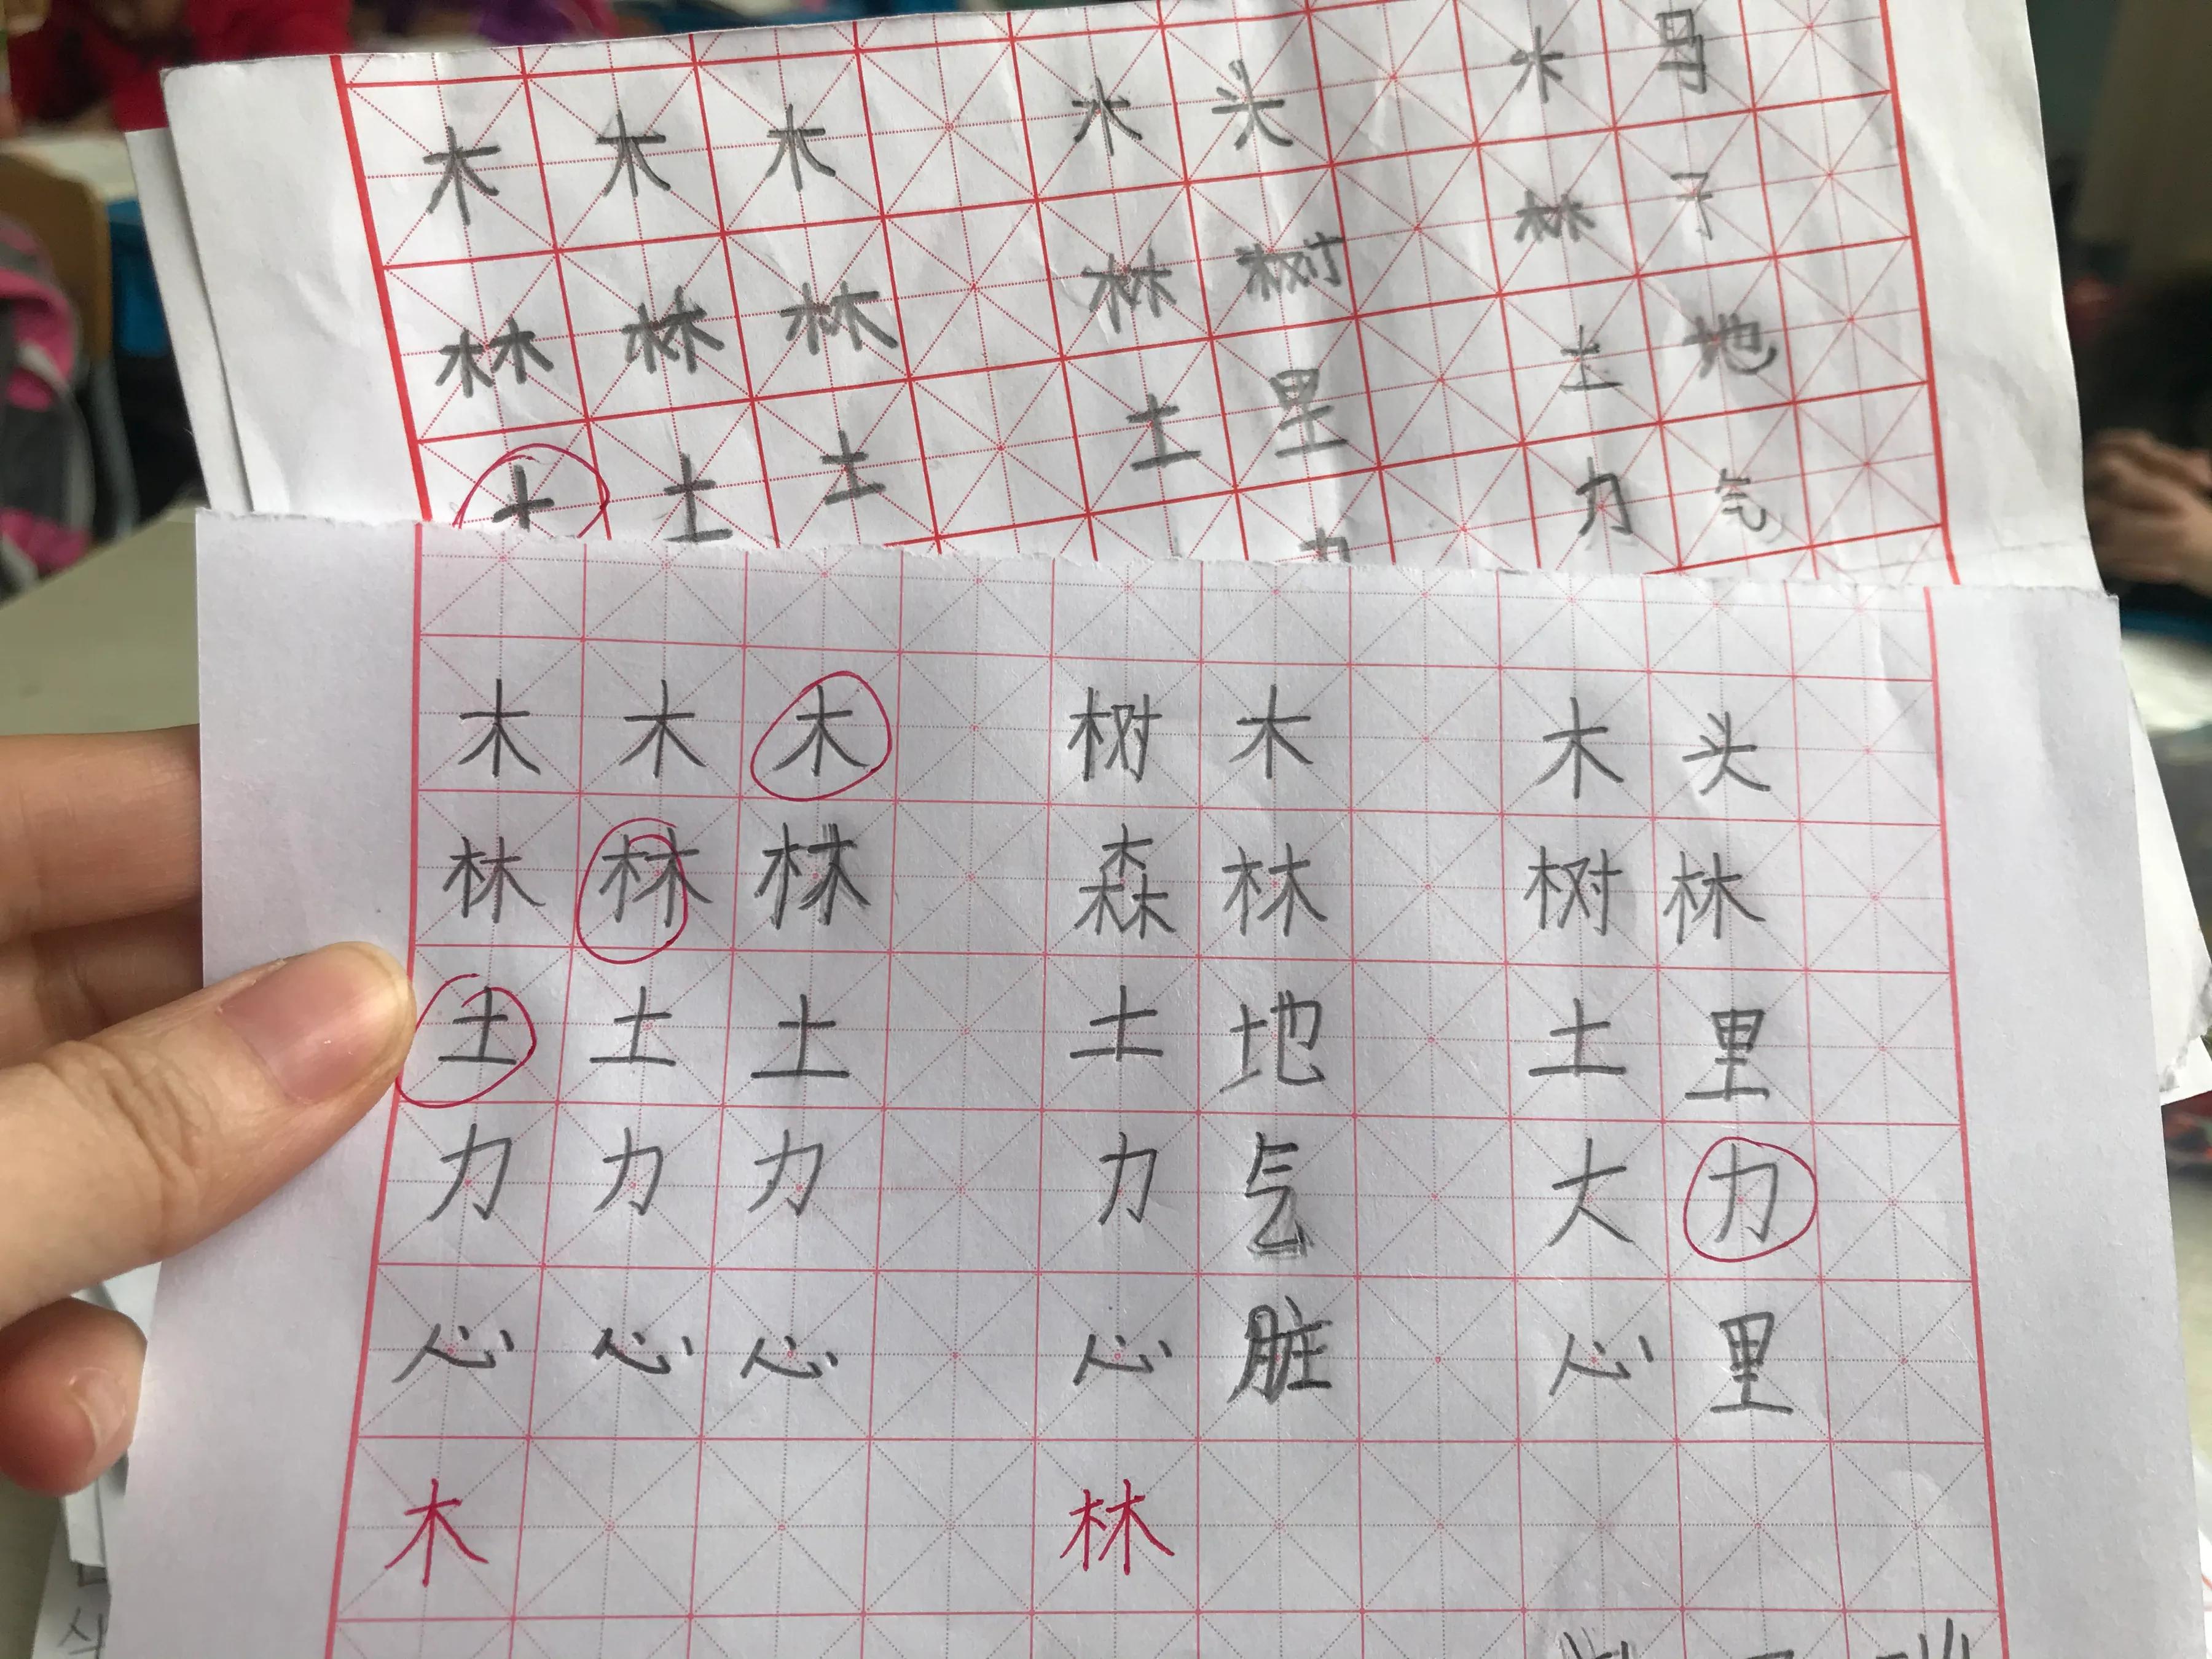 木 木 木 木 头 木 马
林 林 林 林 树 林 子
土 土 土 土 里 土 地
力 力 气
木 木 木 树 木 木 头
林 林 林 森 林 树 林
土 土 土 土 地 土 里
力 力 力 力 气 大 力
心 心 心 心 脏 心 里
木 林